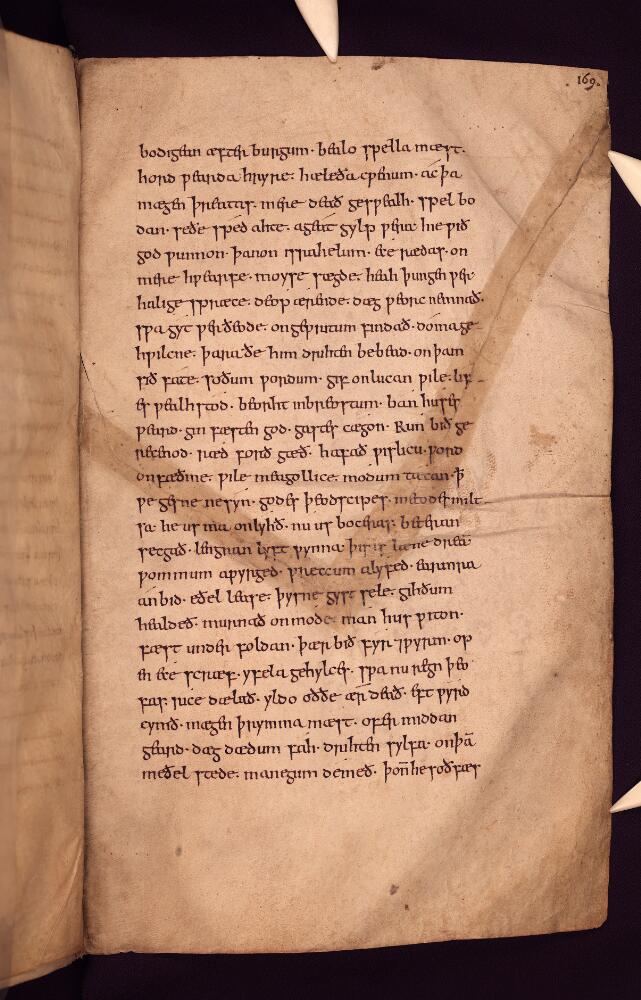 bodigean æfter burgum· bealo spella mæst·
hord ƿearda hryre· hæleða cƿenum· ac þa
mægen þreatas· mere deað gesƿealh· spel bo
dan· seðe sped ahte· ageat gylp ƿera· hie ƿið
god ƿunnon· þanon israhelum· ece rædas· on
mere hƿearfe· moyse sægde· heah þungen ƿer·
halige spræce· deop ærende· dæg ƿeorc nemnað·
sƿa gyt ƿerðeode· ongeƿritum findað· doma ge
hƿilcne· þara ðe him drihten bebead· onþam
sið fate· soðum ƿordum· gif onlucan ƿile· lif
es ƿealhstod· beorht inbreostum· ban huses
ƿeard· gin fæsten god· gastes cægon· Run bið ge
recenod· ræd forð gæð· hafað ƿislicu· ƿord
onfæðme· ƿile meagollice· modum tæcan· ꝥ
ƿe gesne nesyn· godes þeodscipes· metodes milt
sa· he us ma onlyhð· nu us boceras· beteran
secgað· lengran lyft ƿynna· þis is læne dreā
ƿommum aƿyrged· ƿreccum alyfed· earmra
anbid· eðel lease· þysne gyst sele· gihðum
healdeð· murnað onmode· man hus ƿiton·
fæst under foldan· þær bið fyr ⁊ƿyrm· op
en ece scræf· yfela gehylces· sƿa nu regn þeo
fas· rice dælað· yldo oððe ær deað· eft ƿyrd
cymð· mægen þrymma mæst· ofer middan
geard· dæg dædum fah· drihten sylfa· onþā
meðel stede· manegum demeð· þoñ he soðfæs